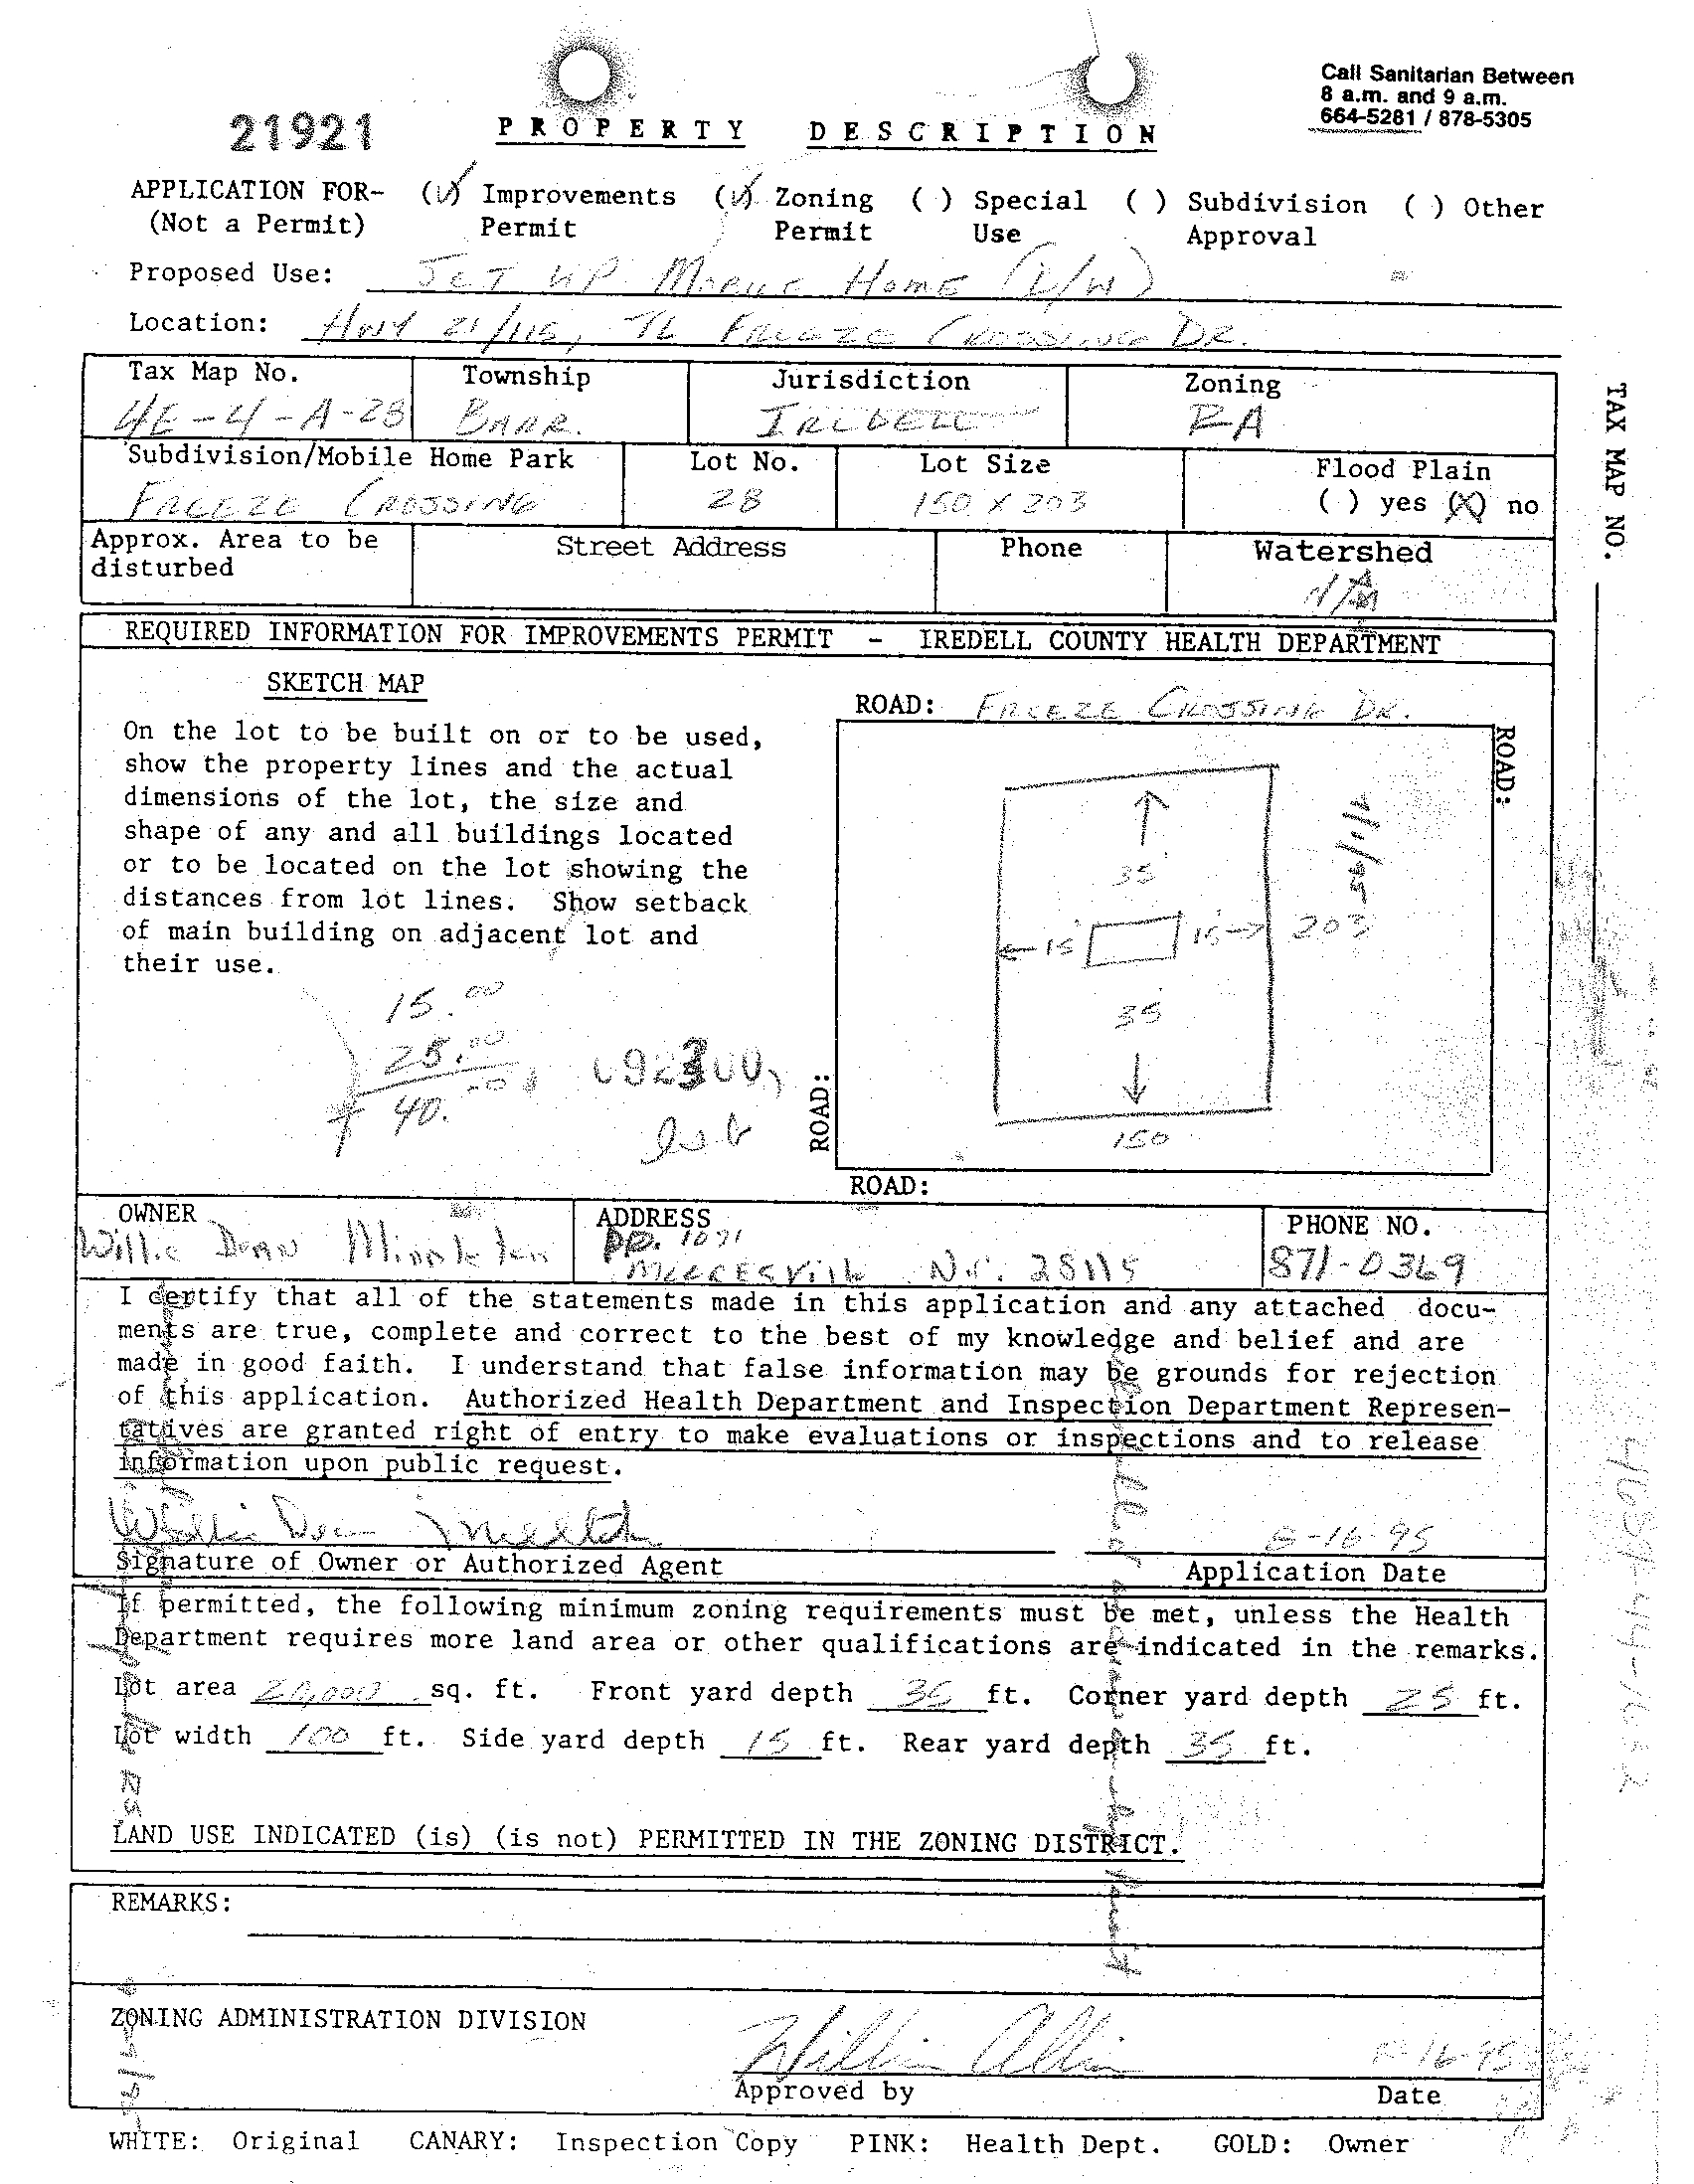 Call Sanitarian Between
8 a.m. and 9 a.m.
664-5281 / 878-5305
21921 PROPERTY DESCRIPTION
APPLICATION FOR- (✓) Improvements (✓) Zoning ( ) Special ( ) Subdivision ( ) Other
(Not a Permit) Permit Permit Use Approval
Proposed Use: SET UP MOBILE HOME (D/W)
Location: HWY 21/115, TL FREEZE CROSSING DR.
Tax Map No. Township Jurisdiction Zoning
4E-4-A-28 BARR. IREDELL RA
Subdivision/Mobile Home Park Lot No. Lot Size Flood Plain
FREEZE CROSSING 28 150 X 203 ( ) yes (X) no
Approx. Area to be Street Address Phone Watershed
disturbed
N/A
TAX MAP NO.
REQUIRED INFORMATION FOR IMPROVEMENTS PERMIT - IREDELL COUNTY HEALTH DEPARTMENT
SKETCH MAP
ROAD: FREEZE CROSSING DR.
On the lot to be built on or to be used,
show the property lines and the actual
dimensions of the lot, the size and
shape of any and all buildings located
or to be located on the lot showing the
distances from lot lines. Show setback
of main building on adjacent lot and
their use.
ROAD:
35
15 15 203
35
150
15.00
25.00
40.
ROAD:
ROAD:
OWNER ADDRESS PHONE NO.
Willie Dean Middleton P.O. 1071
MOORESVille N.C. 28115 871-0369
I certify that all of the statements made in this application and any attached docu-
ments are true, complete and correct to the best of my knowledge and belief and are
made in good faith. I understand that false information may be grounds for rejection
of this application. Authorized Health Department and Inspection Department Represen-
tatives are granted right of entry to make evaluations or inspections and to release
information upon public request.
Willie Dean Middleton 8-16-95
Signature of Owner or Authorized Agent Application Date
If permitted, the following minimum zoning requirements must be met, unless the Health
Department requires more land area or other qualifications are indicated in the remarks.
Lot area 20,000 sq. ft. Front yard depth 35 ft. Corner yard depth 25 ft.
Lot width 100 ft. Side yard depth 15 ft. Rear yard depth 35 ft.
LAND USE INDICATED (is) (is not) PERMITTED IN THE ZONING DISTRICT.
REMARKS:
ZONING ADMINISTRATION DIVISION
William Allin 8-16-95
Approved by Date
WHITE: Original CANARY: Inspection Copy PINK: Health Dept. GOLD: Owner